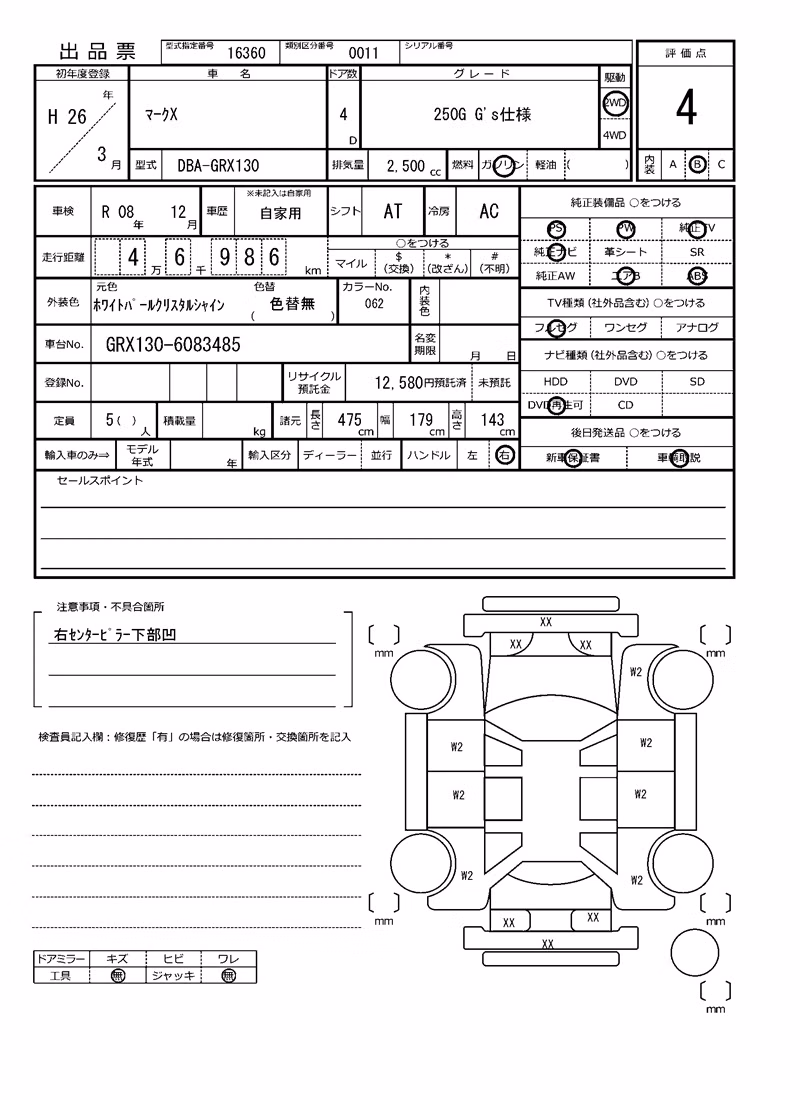 出品票 型式指定番号 16360 類別区分番号 0011 シリアル番号
評価点
初年度登録 車名 ドア数 グレード 駆動
H 26 年 3 月 マークX 4 D 250G G's仕様 2WD 4WD
4
型式 DBA-GRX130 排気量 2,500 cc 燃料 ガソリン 軽油 ( )
内装 A B C
車検 R 08 年 12 月 車歴 ※未記入は自家用 自家用 シフト AT 冷房 AC
純正装備品 ○をつける
PS PW 純正TV
純正ナビ 革シート SR
純正AW エアB ABS
走行距離 4 万 6 千 9 8 6 km
○をつける
マイル $ (交換) * (改ざん) # (不明)
外装色 元色 ホワイトパールクリスタルシャイン 色替 ( 色替無 ) カラーNo. 062 内装色
TV種類(社外品含む)○をつける
フルセグ ワンセグ アナログ
車台No. GRX130-6083485 名変期限 月 日
ナビ種類(社外品含む)○をつける
HDD DVD SD
DVD再生可 CD
登録No. リサイクル預託金 12,580円預託済 未預託
定員 5( )人 積載量 kg 諸元 長さ 475 cm 幅 179 cm 高さ 143 cm
後日発送品 ○をつける
新車保証書 車輌取説
輸入車のみ⇒ モデル年式 年 輸入区分 ディーラー 並行 ハンドル 左 右
セールスポイント
注意事項・不具合箇所
右センターピラー下部凹
検査員記入欄:修復歴「有」の場合は修復箇所・交換箇所を記入
ドアミラー キズ ヒビ ワレ
工具 無 ジャッキ 無
XX
XX XX
mm mm
W2
W2 W2
W2 W2
W2 W2
mm mm
XX XX
XX
mm